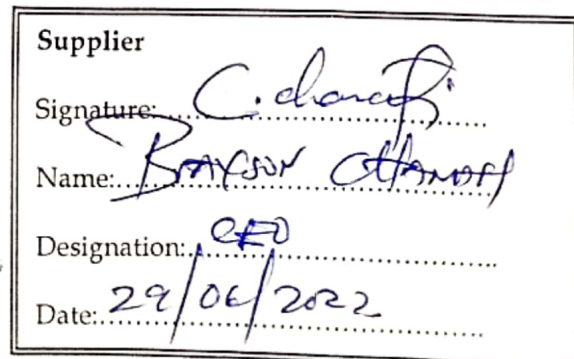 Supplier
Signature:
Name: BRAYSON
Designation: CEO
Date: 29/06/2022